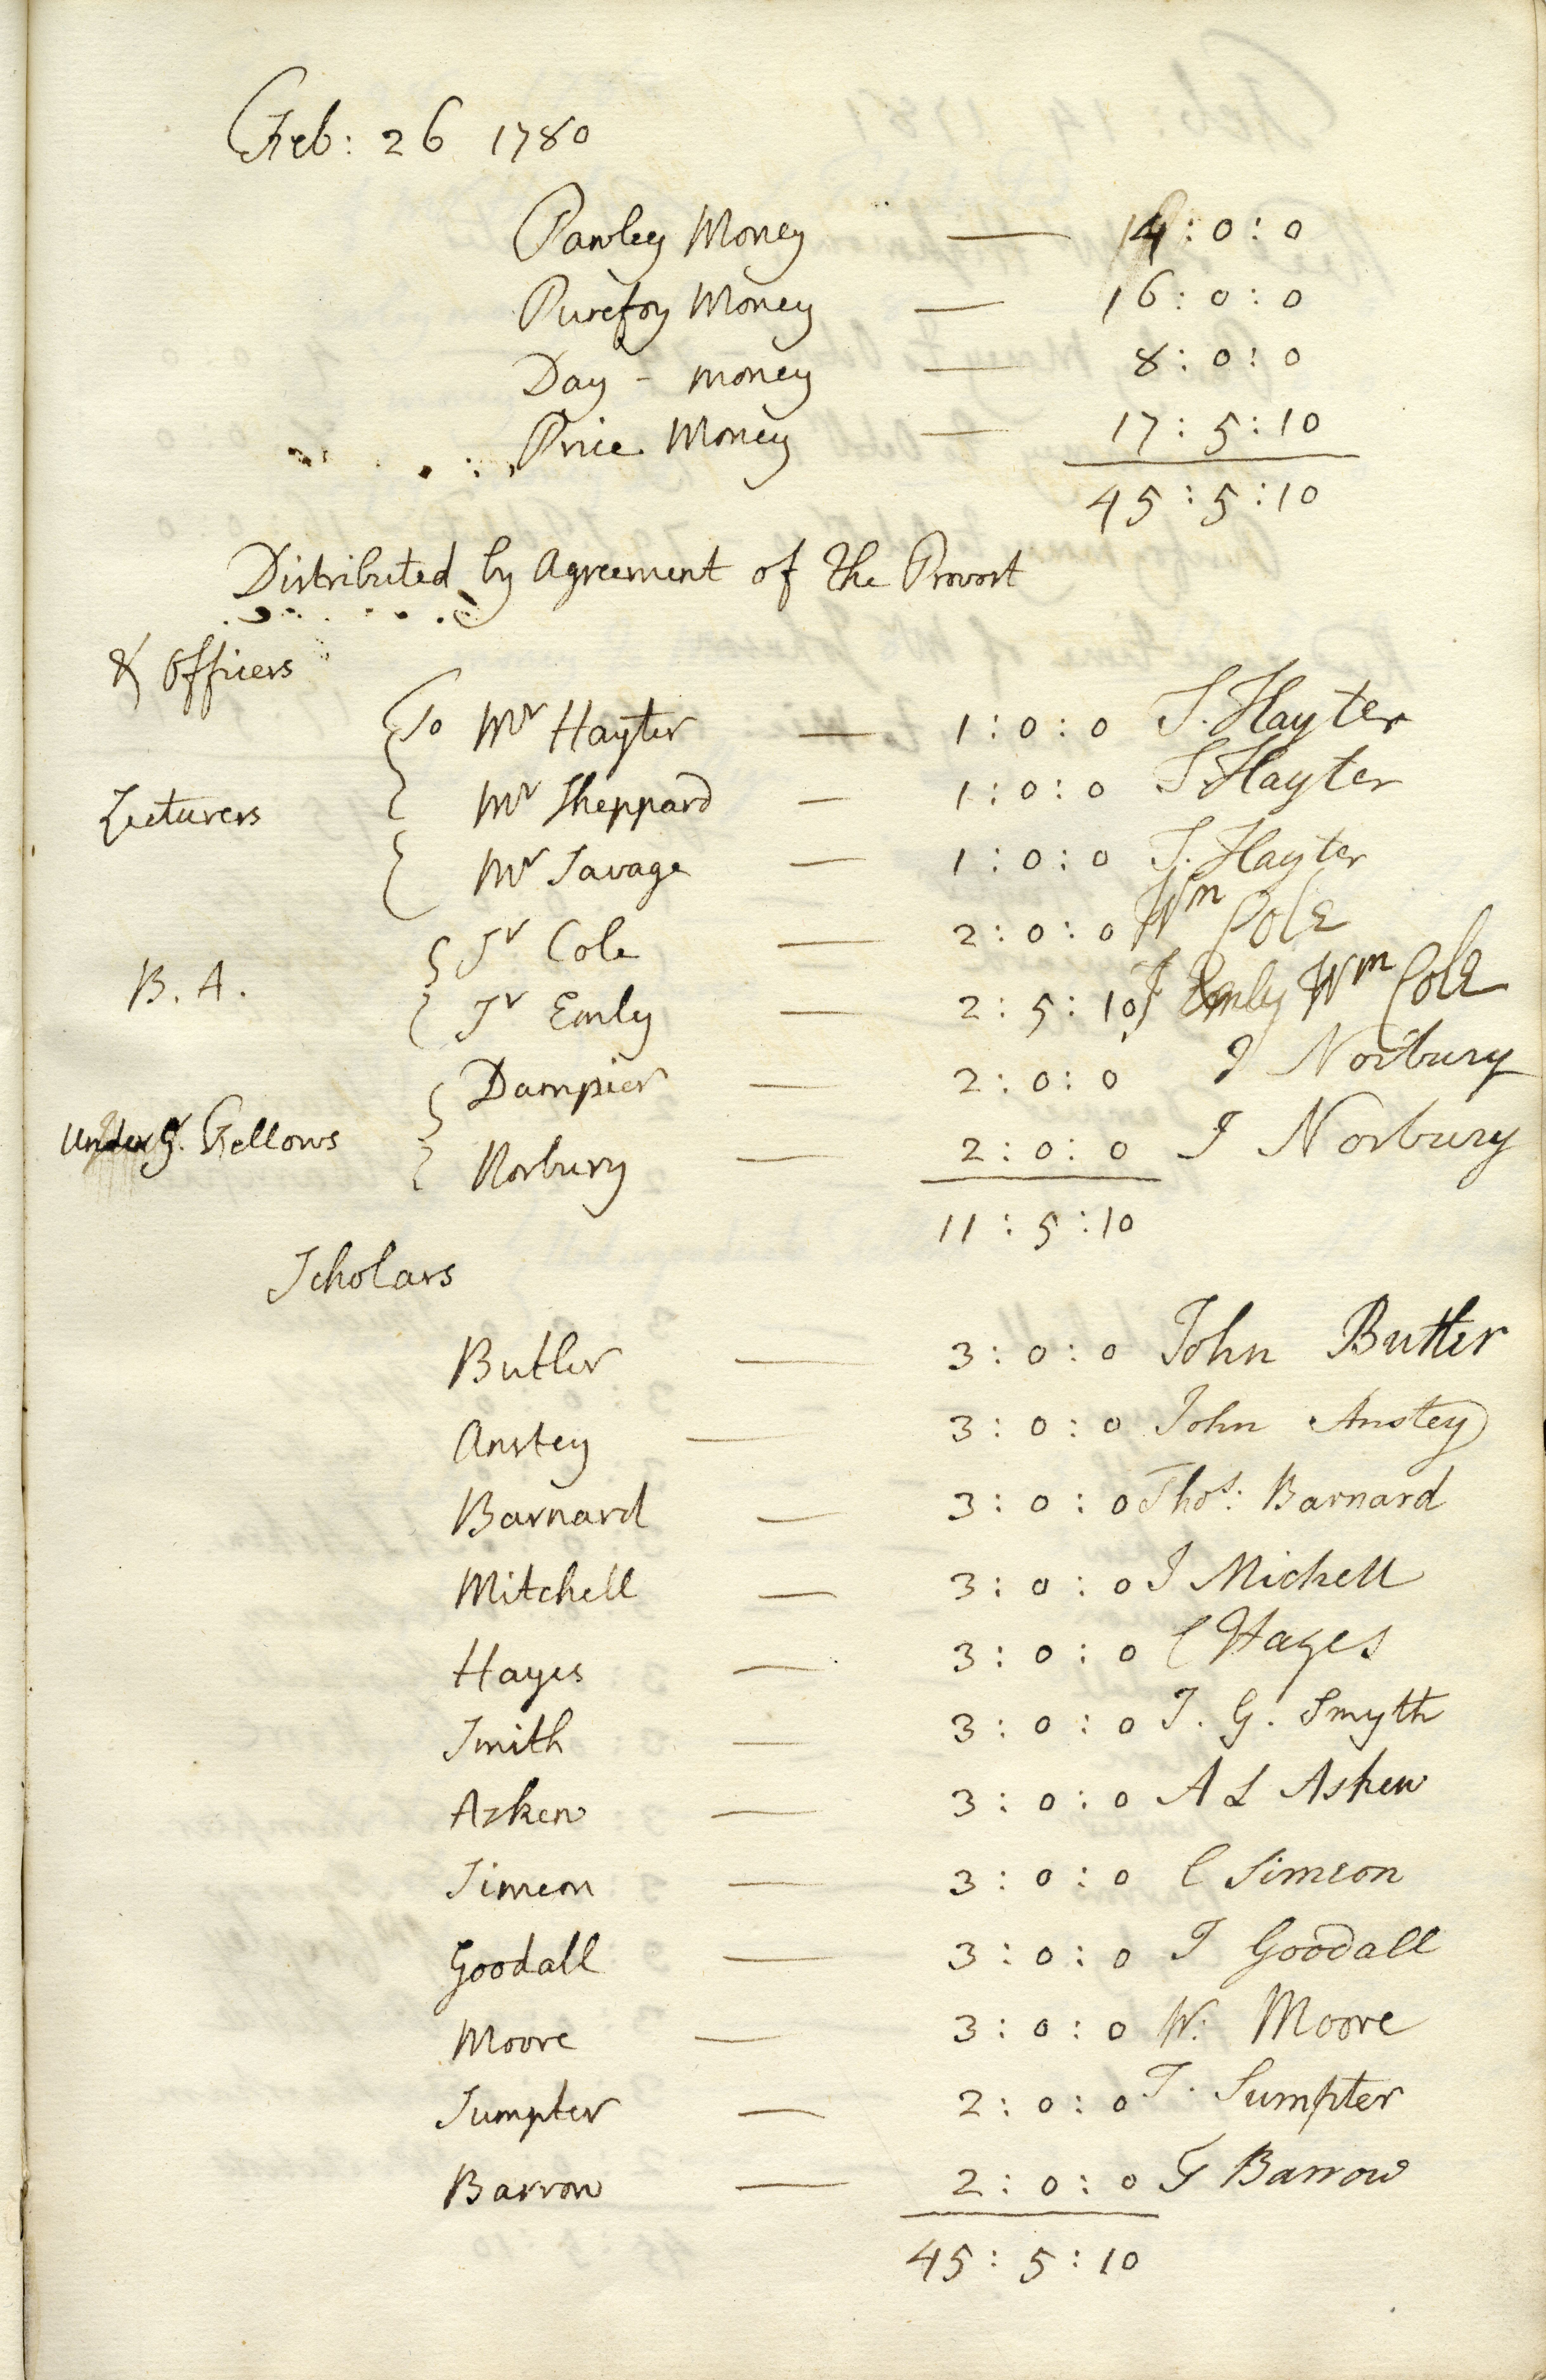 Feb: 26 1780
Pawley Money — 4 : 0 : 0
Purefoy Money — 16 : 0 : 0
Day - money — 8 : 0 : 0
Price Money — 17 : 5 : 10
45 : 5 : 10
Distributed by Agreement of the Provost
& Officers
To Mr Hayter — 1 : 0 : 0 J. Hayter
Lecturers Mr Sheppard — 1 : 0 : 0 J Hayter
Mr Savage — 1 : 0 : 0 J. Hayter
Sr Cole — 2 : 0 : 0 Wm Cole
B. A. Sr Emly — 2 : 5 : 10 Emly Wm Cole
Dampier — 2 : 0 : 0 J Norbury
Under G. Fellows Norbury — 2 : 0 : 0 J Norbury
11 : 5 : 10
Scholars
Butler — 3 : 0 : 0 John Butler
Anstey — 3 : 0 : 0 John Anstey
Barnard — 3 : 0 : 0 Thos: Barnard
Mitchell — 3 : 0 : 0 J Michell
Hayes — 3 : 0 : 0 C Hayes
Smith — 3 : 0 : 0 J. G. Smyth
Askew — 3 : 0 : 0 A L Askew
Simeon — 3 : 0 : 0 C Simeon
Goodall — 3 : 0 : 0 J Goodall
Moore — 3 : 0 : 0 W: Moore
Sumpter — 2 : 0 : 0 T. Sumpter
Barrow — 2 : 0 : 0 F Barrow
45 : 5 : 10